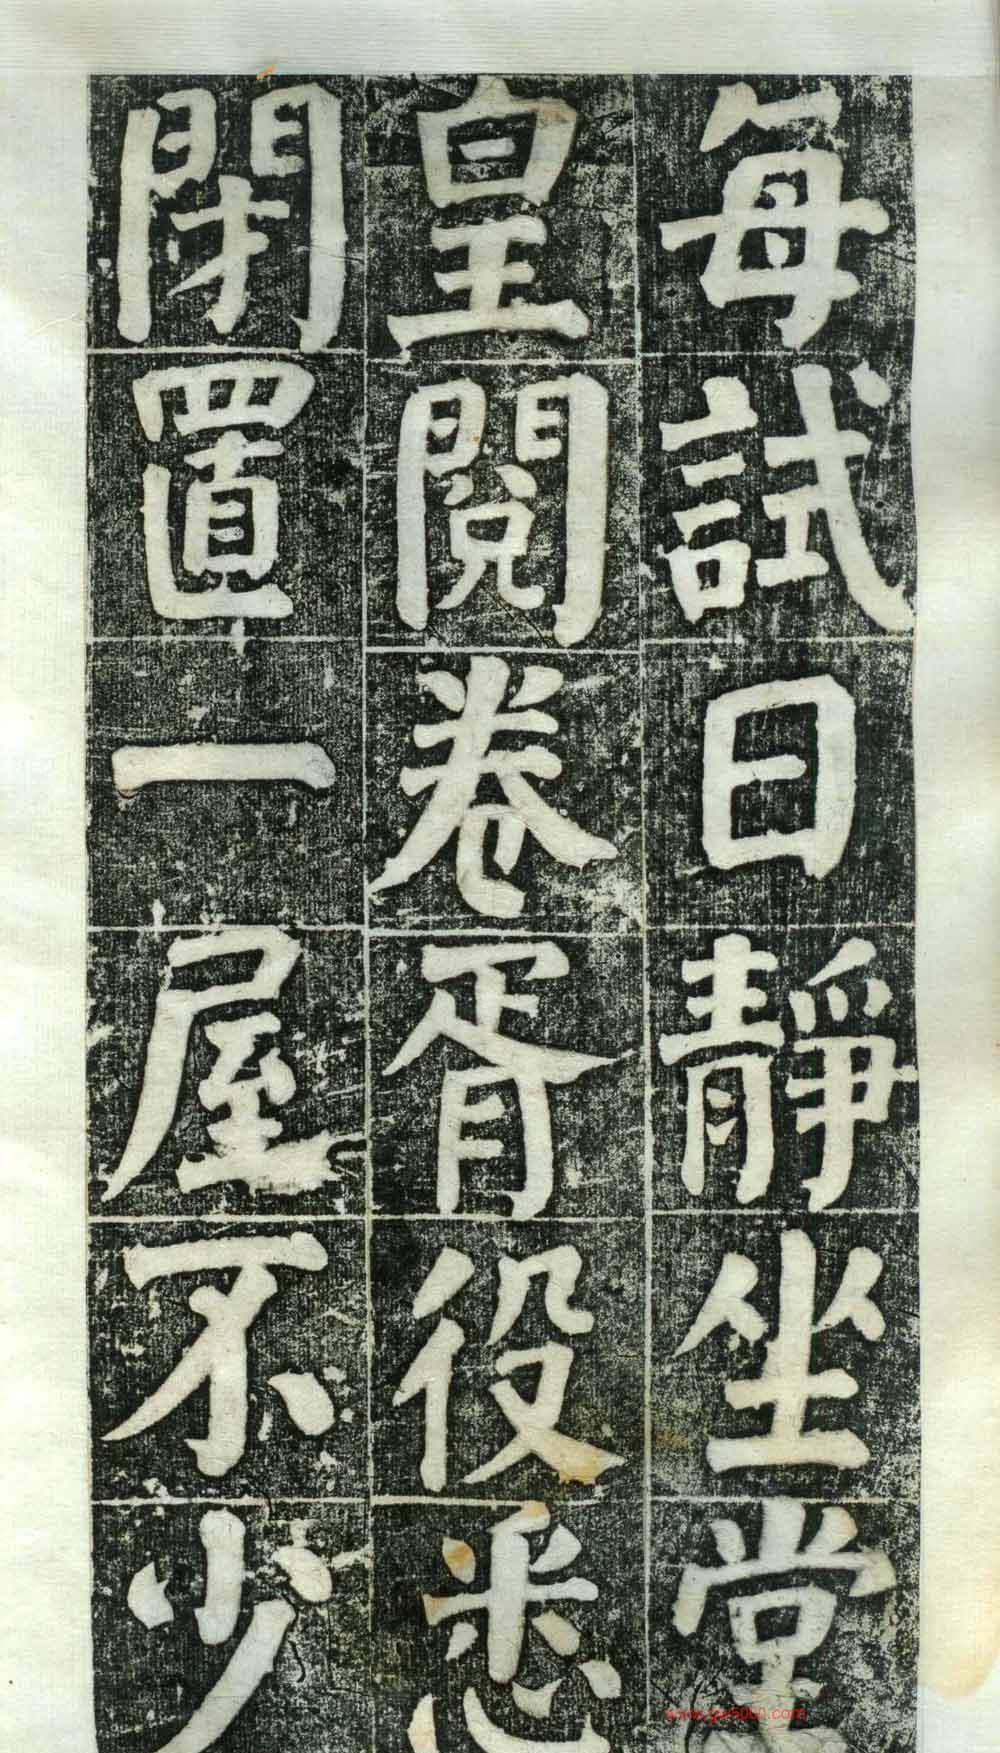 每試日靜坐堂
皇閱卷胥役悉
閉置一屋不少